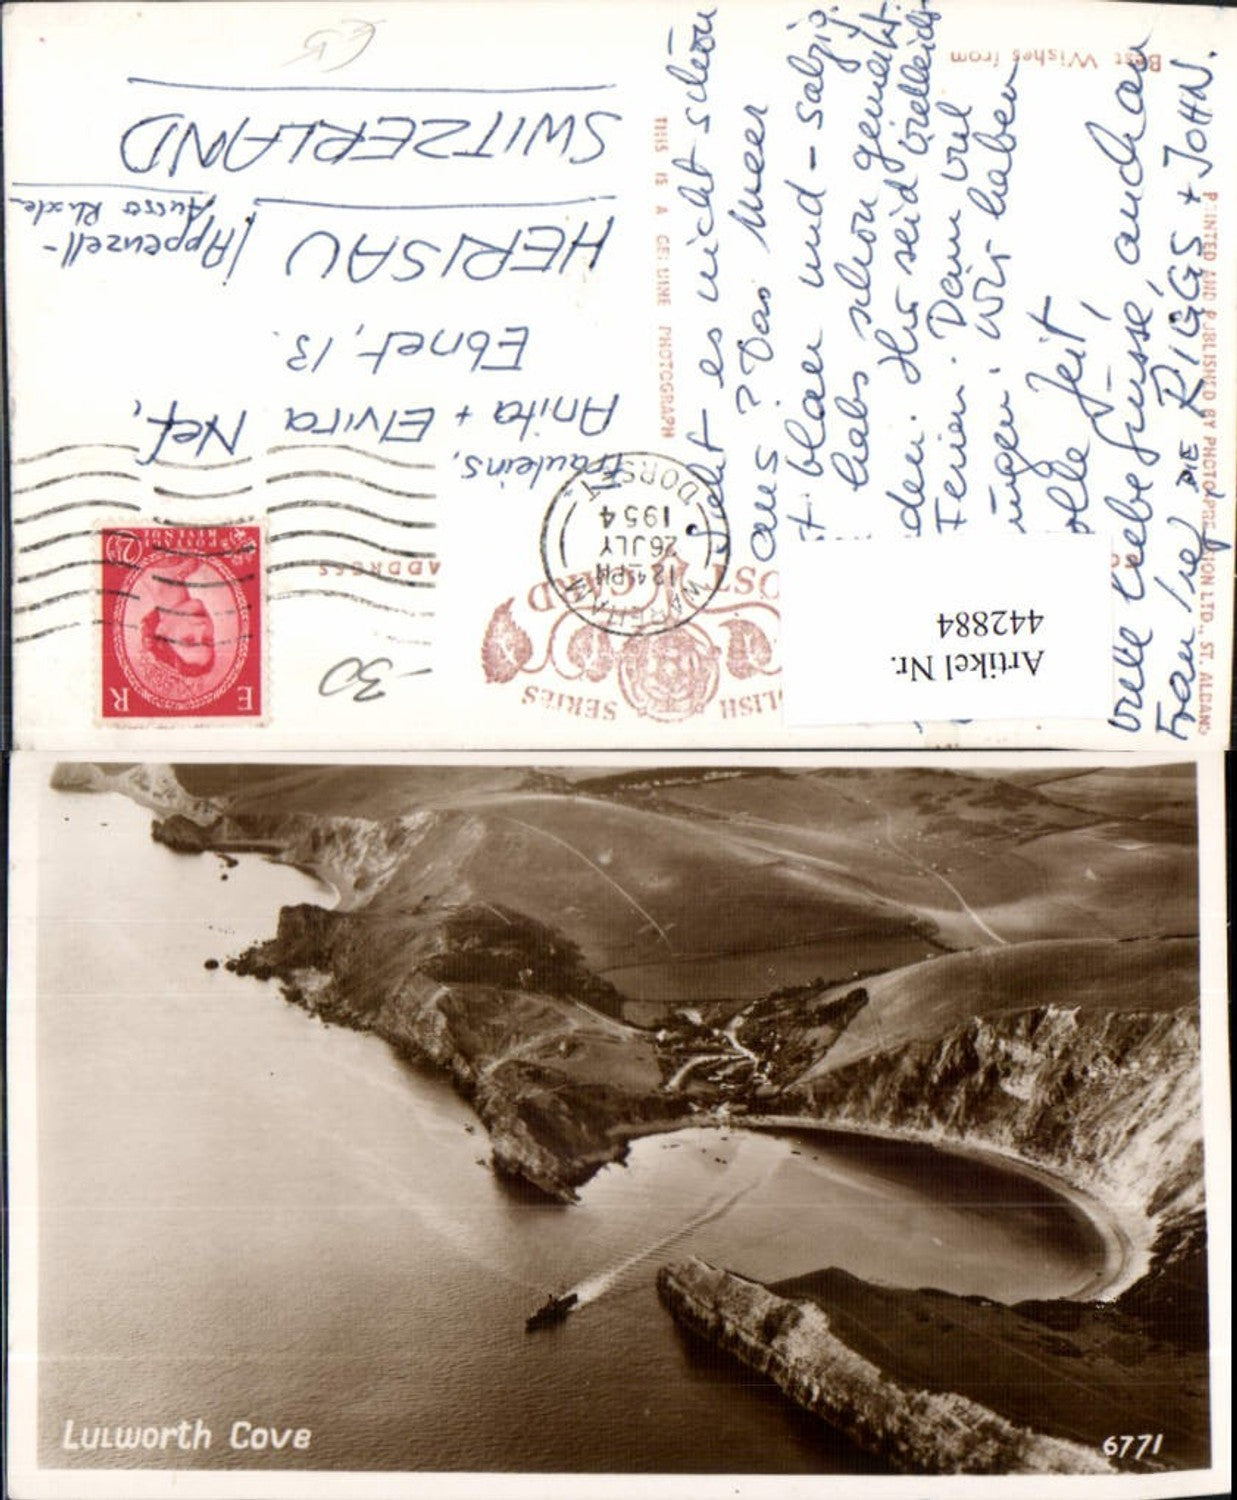 Best Wishes from
Sieht es nicht schön
aus? Das Meer
blau und - salzig.
habs schon gemerkt.
Ihr seid vielleicht
Ferien. Dann viel
Wir haben
Zeit,
viele liebe Grüsse, auch an
Frau Nef DIE RIGGS + JOHN.
THIS IS A GENUINE PHOTOGRAPH
PRINTED AND PUBLISHED BY PHOTOPRECISION LTD., ST. ALBANS
SERIES
POST CARD
ADDRESS
-30
E R
POSTAGE REVENUE
2½D
WAREHAM
12 45 PM
26 JLY
1954
DORSET
Fräuleins,
Anita + Elvira Nef,
Ebnet, 13.
HERISAU / Appenzell-
Ausser Rhoden
SWITZERLAND
Artikel Nr.
442884
Lulworth Cove
6771